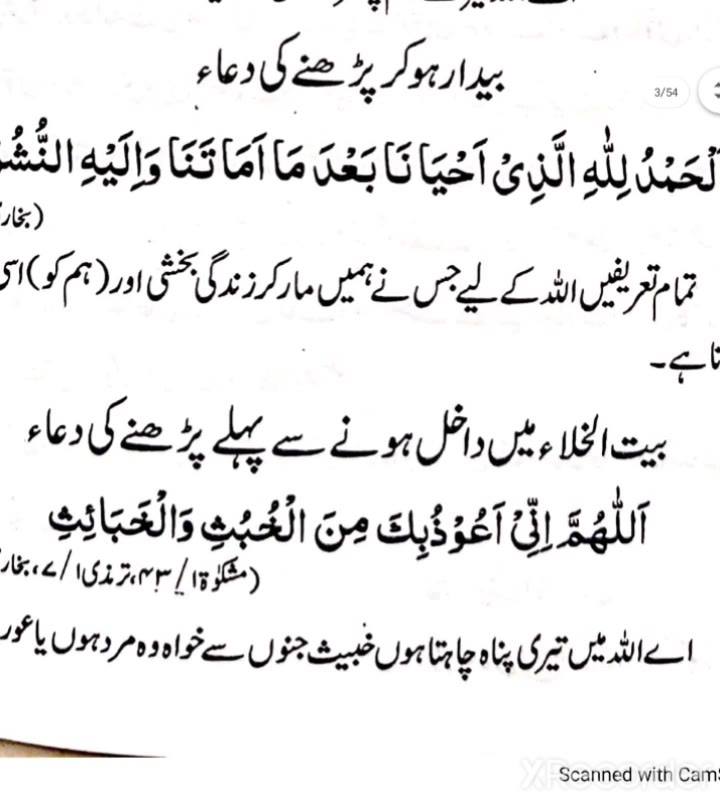 بیدار ہو کر پڑھنے کی دعاء
3/54
اَلْحَمْدُ لِلّٰهِ الَّذِیْ اَحْیَا نَا بَعْدَ مَا اَمَا تَنَا وَاِلَیْهِ النُّشُ
(بخار
تمام تعریفیں اللہ کے لیے جس نے ہمیں مار کر زندگی بخشی اور (ہم کو) اسی
نا ہے۔
بیت الخلاء میں داخل ہونے سے پہلے پڑھنے کی دعاء
اَللّٰهُمَّ اِنِّیْ اَعُوْذُبِكَ مِنَ الْخُبُثِ وَالْخَبَائِثِ
(مشکوٰۃ ۱/ ۴۳، ترمذی ۱/ ۷، بخار
اے اللہ میں تیری پناہ چاہتا ہوں خبیث جنوں سے خواہ وہ مرد ہوں یا عور
Scanned with CamS
XRecorder